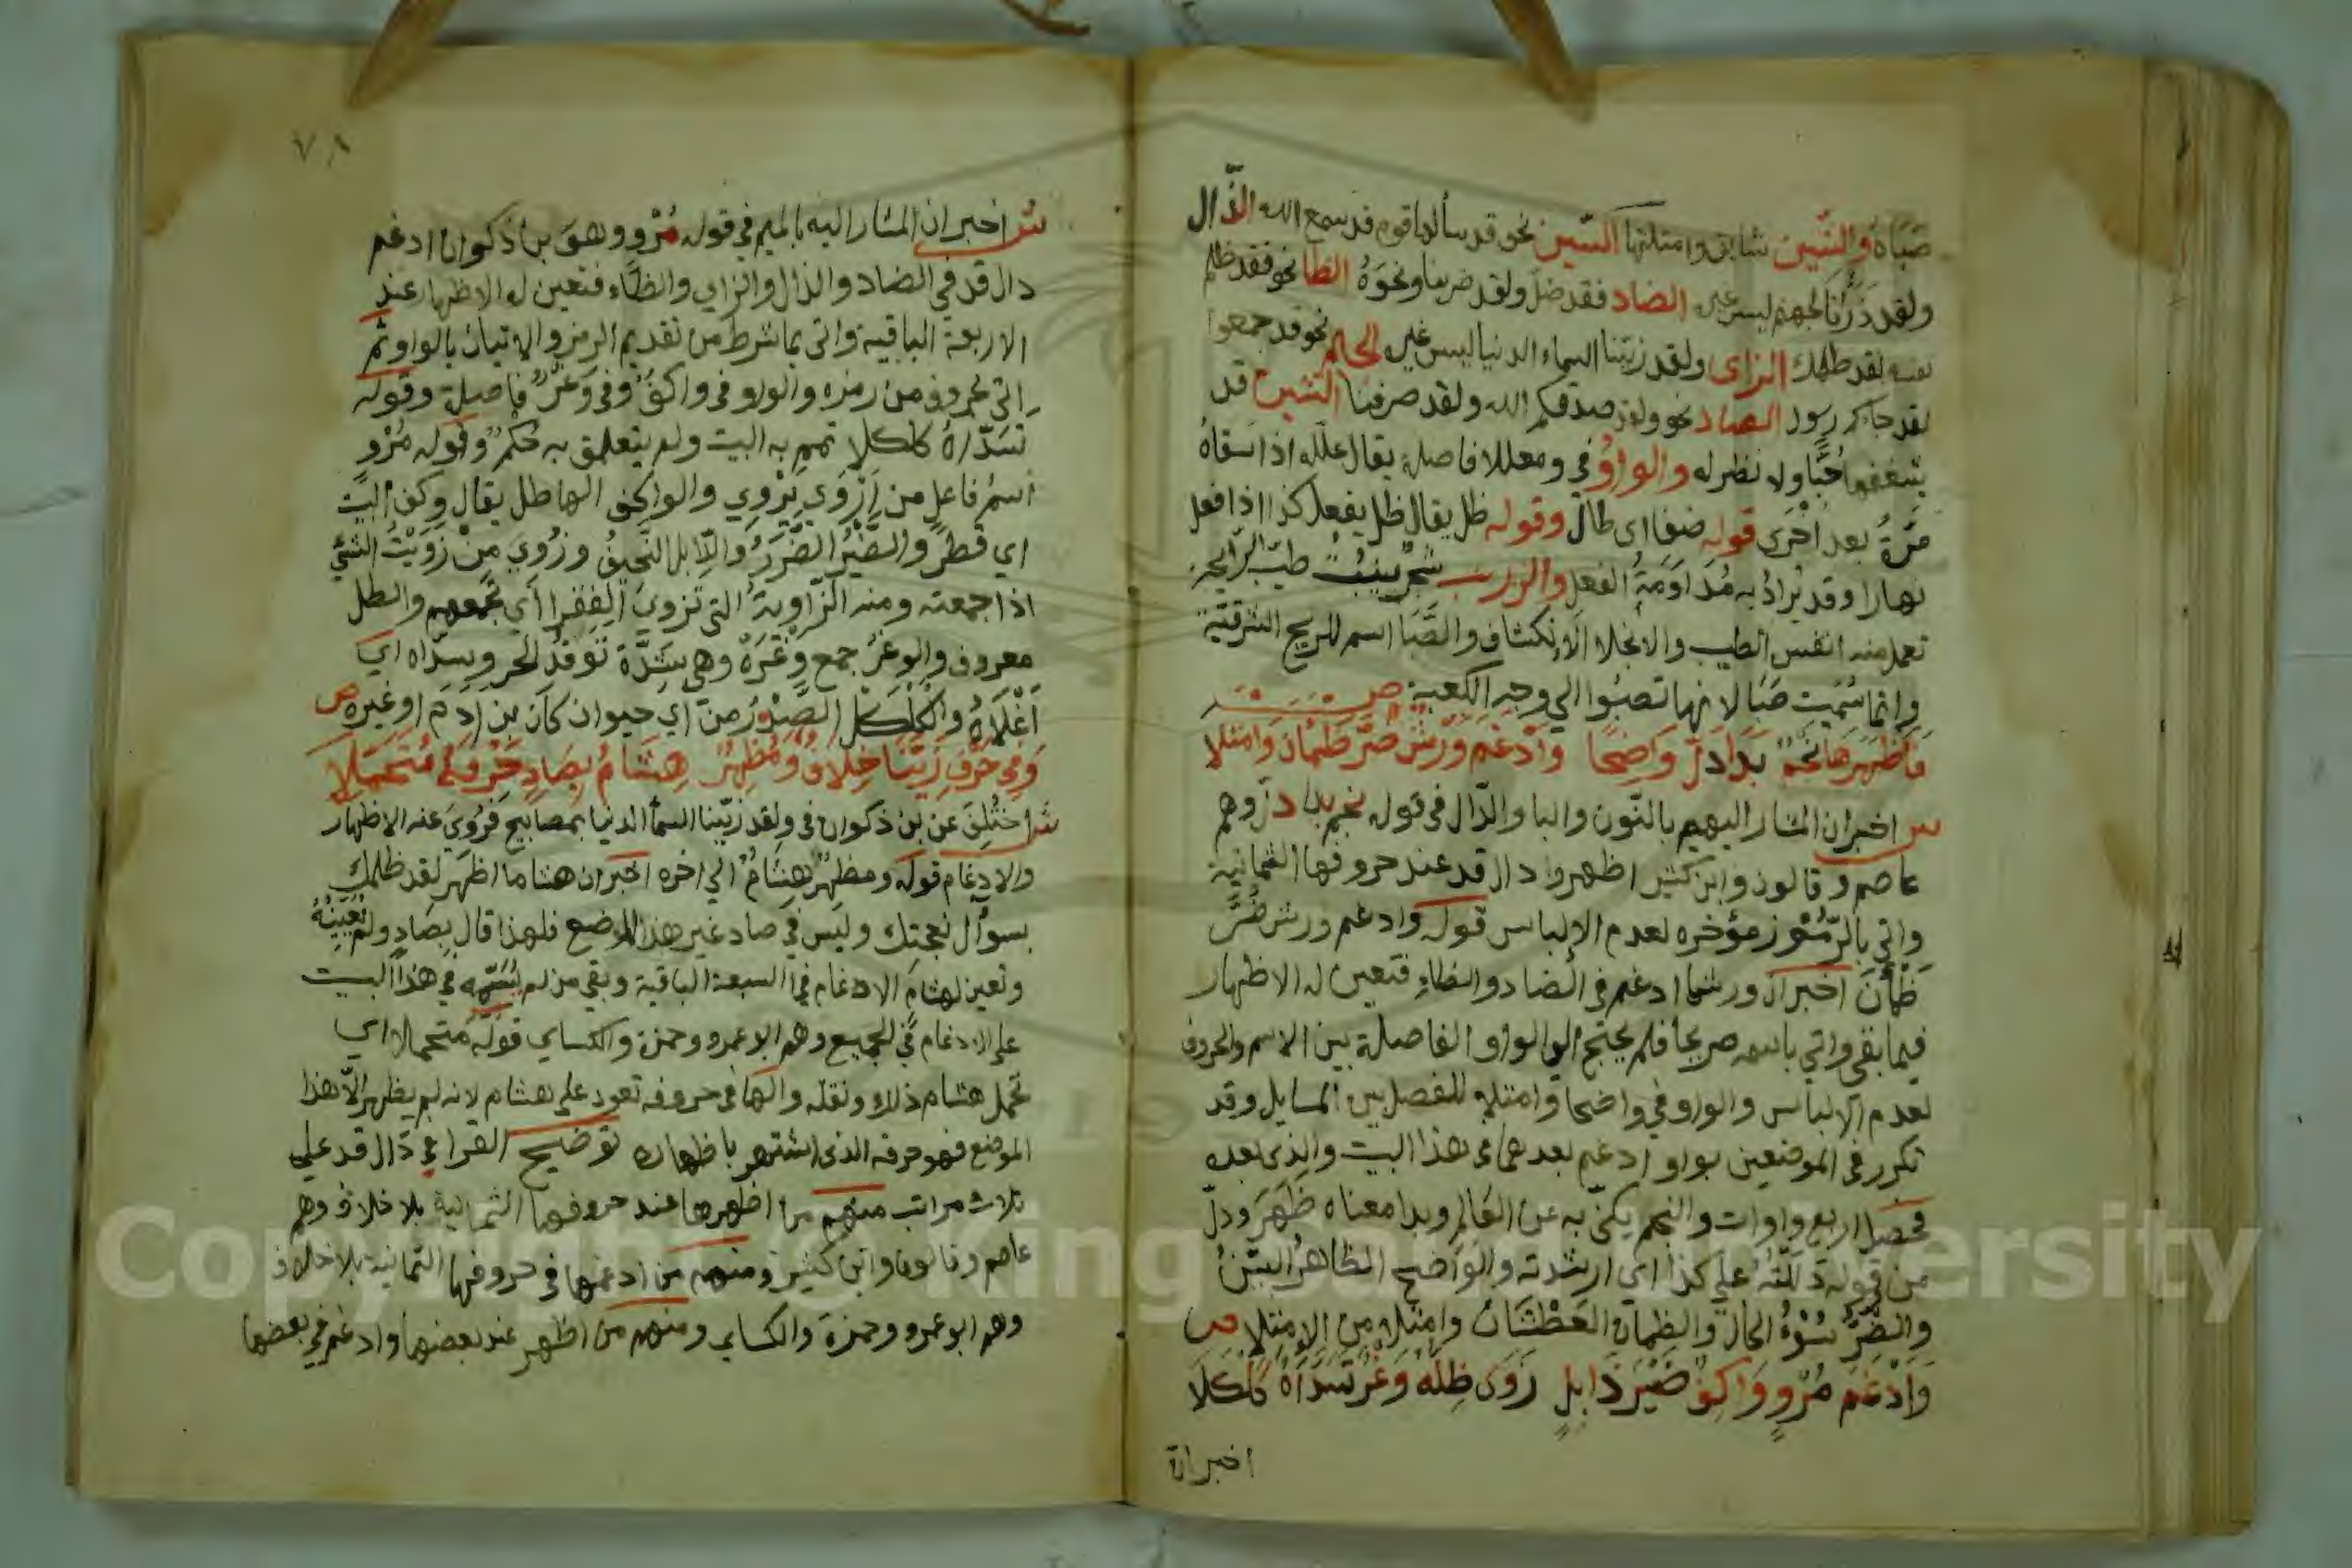 صباه والشين شايق وامثلتها السين نحو قد سألها قوم قد سمع الله الذال
ولقد ذرأنا لجهنم ليس غير الضاد فقد ضل ولقد ضربنا ونحوه الظا نحو فقد ظلم
نفسه لقد ظلمك الزاى ولقد زينا السماء الدنيا ليس غير الجيم نحو قد جمعوا
لقد جاكم رسول الصاد نحو ولقد صدقكم الله ولقد صرفنا الشين قد
شغفها حبا ولا نظير له والواو في ومعللا فاصلة يقال علله اذا سقاه
مرة بعد اخرى قوله ضفا اى طال وقوله ظل يقال ظل يفعل كذا اذا فعل
نهارا وقد يراد به مداومة الفعل والزرنب شجر ينبت طيب الرايحة
تعمل منه انفس الطيب والانجلا الانكشاف والصبا اسم للريح الشرقية
وانما سميت صبا لانها تصبوا الي وجه الكعبة ص
فاظهرها نجم بدا دل واضحا وادغم ورش ضر ظمان وامتلا
ش اخبر ان المشار اليهم بالنون والبا والدال في قوله نجم بدا دل وهم
عاصم وقالون وابن كثير اظهروا دال قد عند حروفها الثمانية
واتي بالرموز مؤخره لعدم الإلباس قوله وادغم ورش ضر
ظمأن اخبر ان ورشا ادغم في الضاد والظاء فتعين له الاظهار
فيما بقي واتي باسمه صريحا فلم يحتج الي الواو الفاصلة بين الاسم والحروف
لعدم الالباس والواو في واضحا وامتلا للفصل بين المسايل وقد
تكرر في الموضعين بواو ادغم بعدهما في هذا البيت والذى بعده
فحصل اربع واوات والنجم يكنى به عن العالم وبدا معناه ظهر ودل
من قوله دللته علي كذا اي ارشدته والواضح الظاهر البين
والضر سوء الحال والظمان العطشان وامتلا من الامتلا ص
وادغم مرو واكف ضير ذابل زوى ظله وغر تسداه كلكلا
اخبر ان
٧٨
ش اخبر ان المشار اليه بالميم في قوله مرو وهو بن ذكوان ادغم
دال قد في الضاد والذال والزاي والظاء فتعين له الاظهار عند
الاربعة الباقية واتى بما شرط من تقديم الرمز والاتيان بالواو ثم
اتي بحروف من رمزه والواو في واكف وفي وغر فاصلة وقوله
تسداه كلكلا تمم به البيت ولم يتعلق به حكم وقوله مرو
اسم فاعل من اروي يروي والواكف الهاطل يقال وكف البيت
اي قطر والضير الضرر والذابل النحيف وزوي من زويت الشئ
اذا جمعته ومنه الزاوية التي تزوي الفقرا اي تجمعهم والظل
معروف والوغر جمع وغرة وهي شدة توقد الحر وتسداه اي
اعلاه والكلكل الصدر من اي حيوان كان بن ادم او غيره ص
وفي حرف زينا خلاف ومظهر هشام بصاد حرفه متحملا
ش اختلف عن بن ذكوان في ولقد زينا السما الدنيا بمصابيح فروي عنه الاظهار
والادغام قوله ومظهر هشام الي اخره اخبر ان هشاما اظهر لقد ظلمك
بسوال نعجتك وليس في صاد غير هذا الموضع فلهذا قال بصاد ولم يعينه
وتعين لهشام الادغام في السبعة الباقية وبقي من لم يسمه في هذا البيت
على الادغام في الجميع وهم ابو عمرو وحمزة والكساي قوله متحملا اي
تحمل هشام ذلك ونقله والها في حروفه تعود على هشام لانه لم يظهر الا هذا
الموضع فهو حرفه الذى اشتهر باظهاره توضيح القرا في دال قد علي
ثلاث مراتب منهم من اظهرها عند حروفها الثمانية بلا خلاف وهم
عاصم وقالون وابن كثير ومنهم من ادغمها في حروفها الثمانية بلا خلاف
وهم ابو عمرو وحمزة والكساي ومنهم من اظهر عند بعضها وادغم في بعضها
Copyright © King Saud University